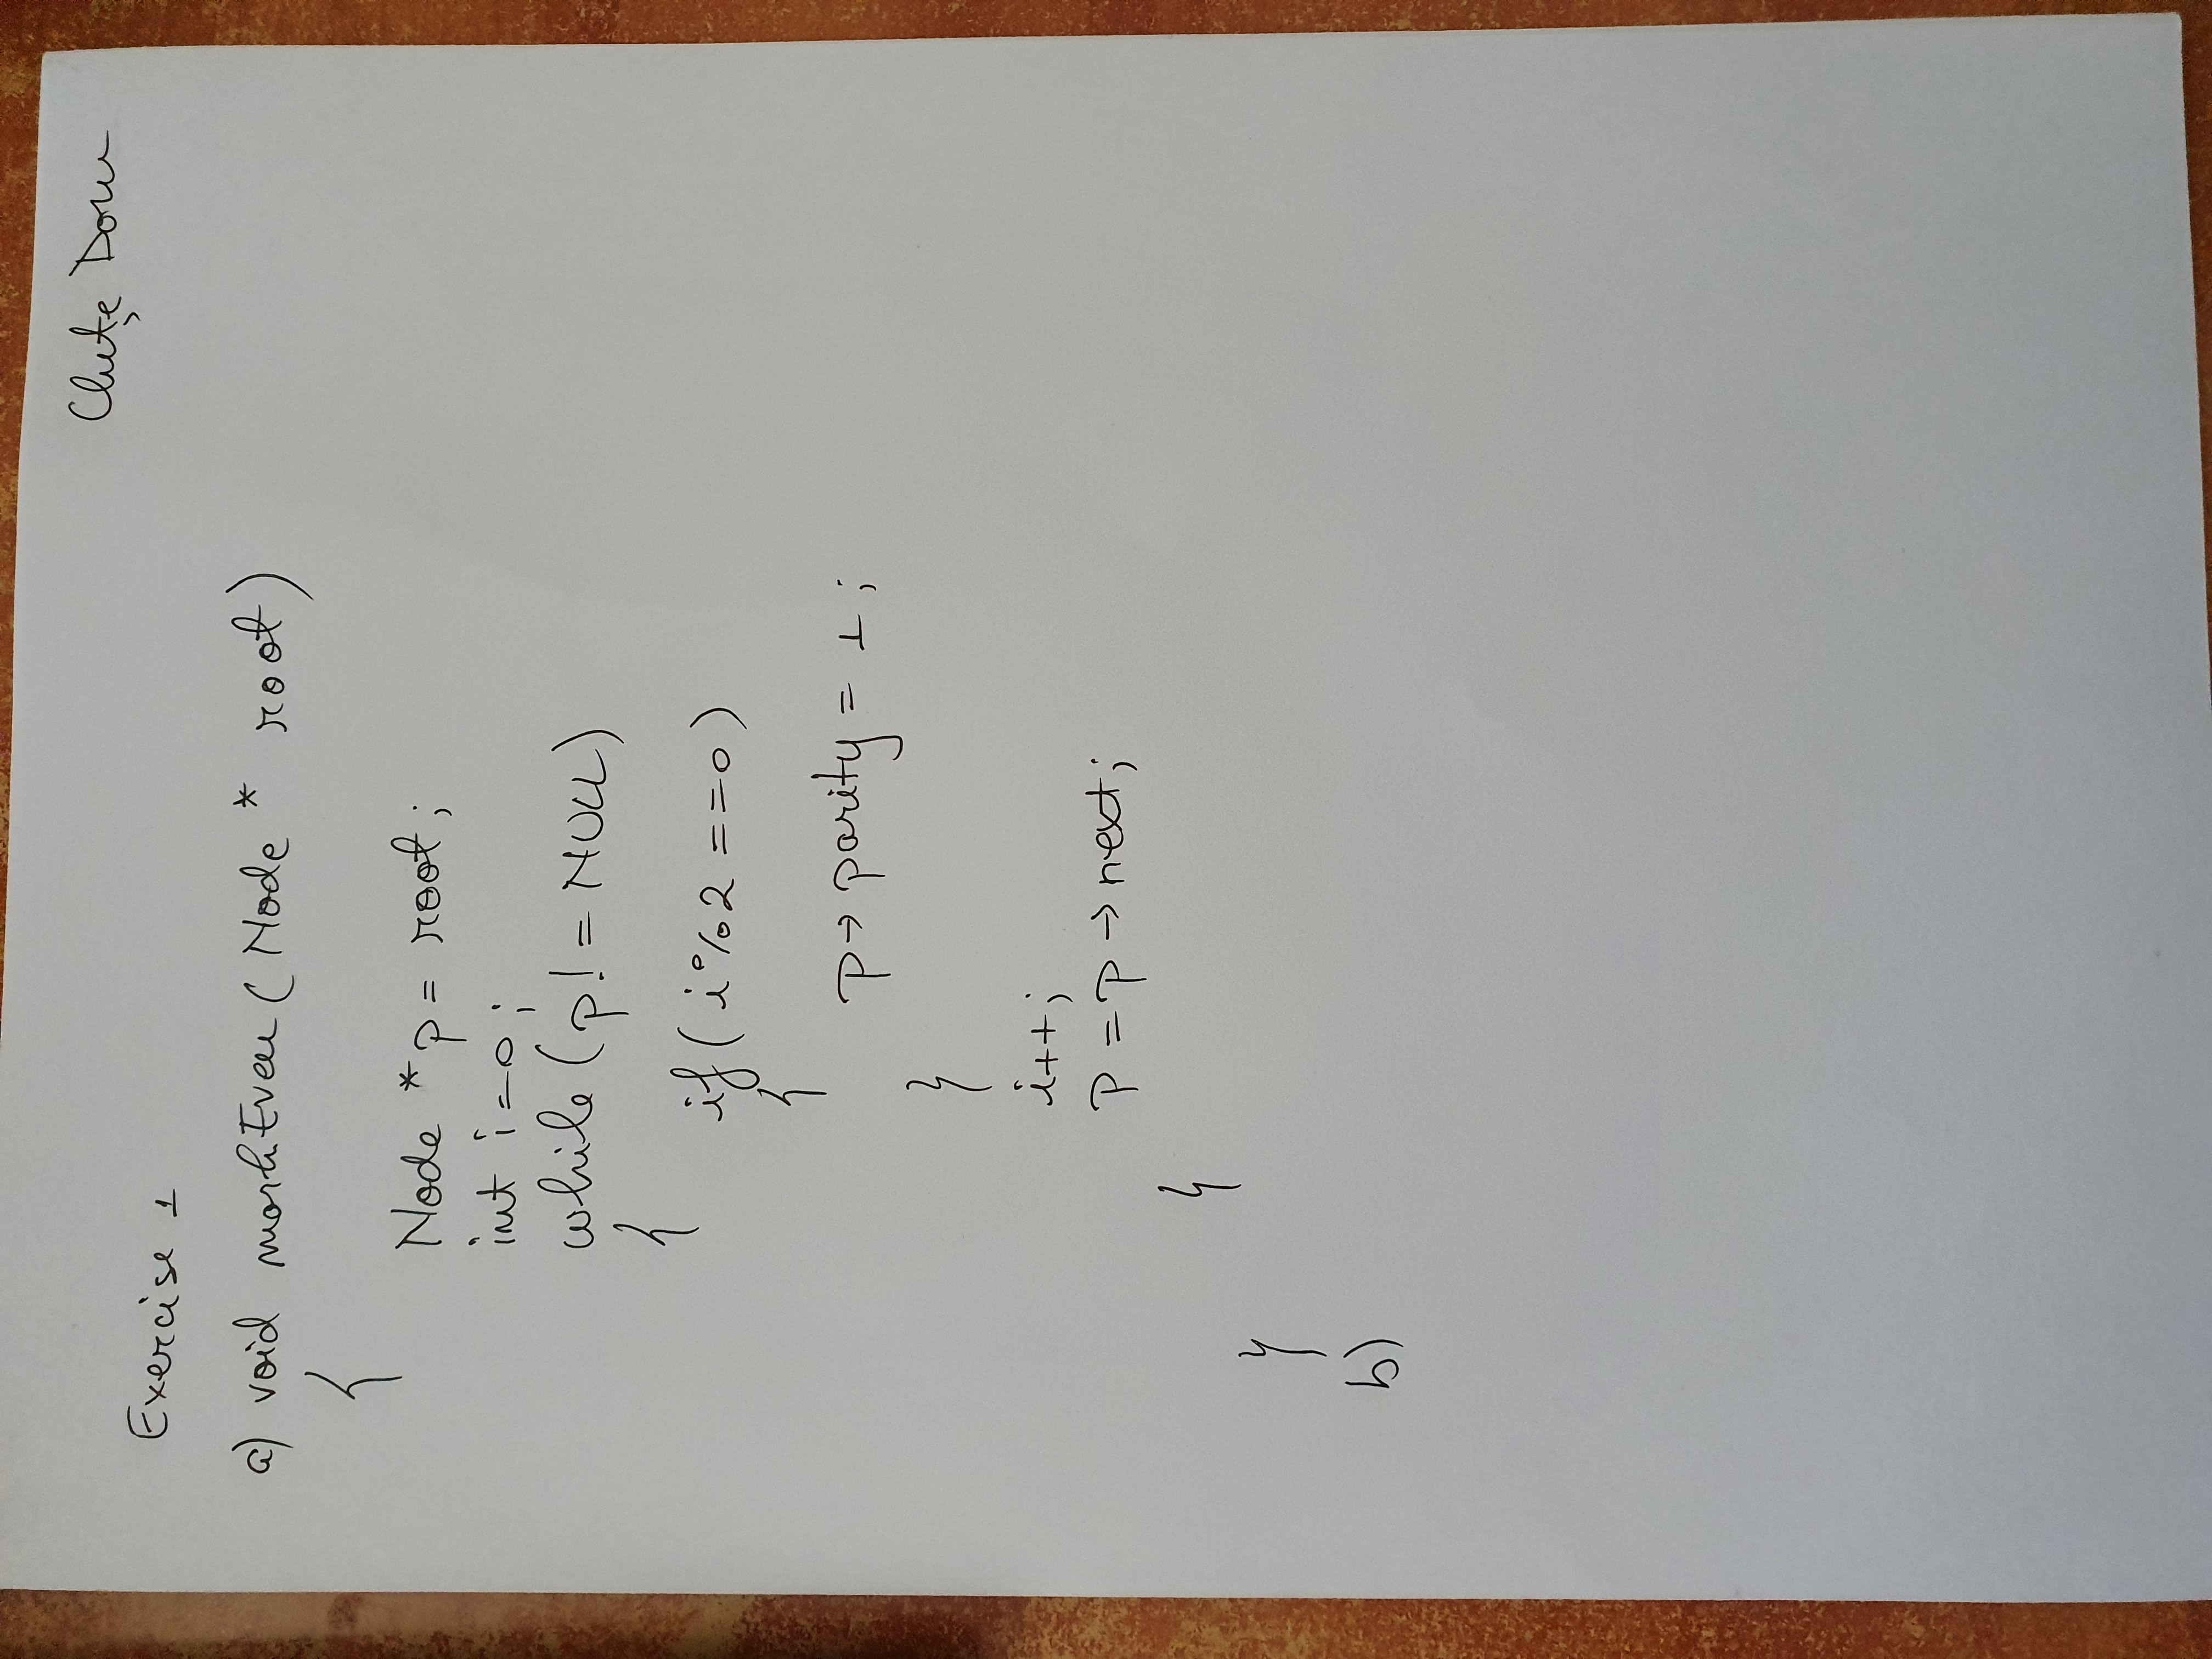 Exercise 1
a) void markEven (Node * root)
{
Node *p = root;
int i=0;
while (p! = NULL)
{
if (i%2 ==0)
{
p→ parity = 1;
}
i++;
p = p → next;
}
}
b)